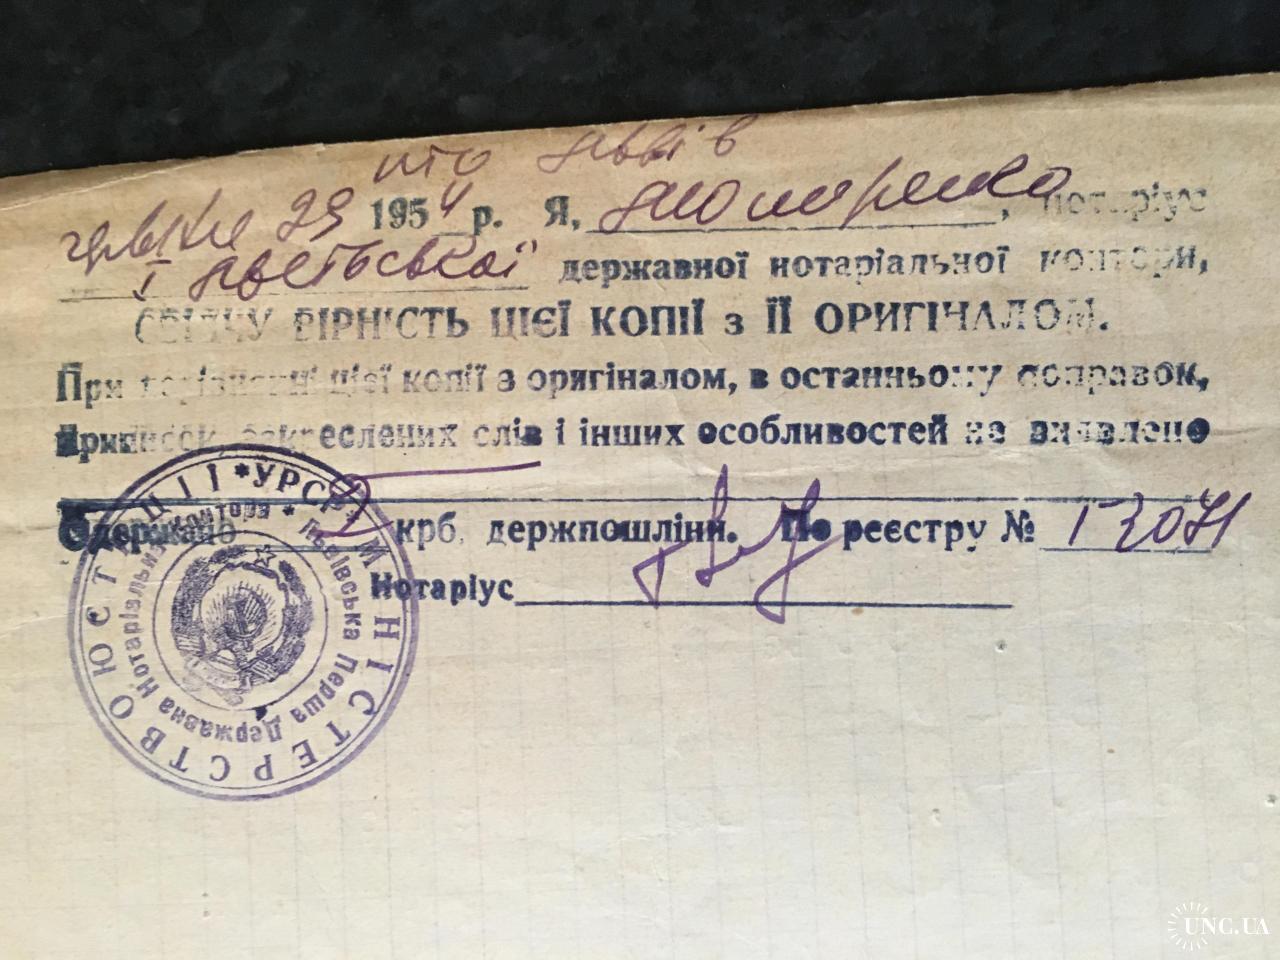 місто Львів
грудня 29 1954 р. Я, , нотаріус
I Львівської державної нотаріальної контори,
СВІДЧУ ВІРНІСТЬ ЦІЄЇ КОПІЇ з ЇЇ ОРИГІНАЛОМ.
При порівнянні цієї копії з оригіналом, в останньому поправок,
приписок, закреслених слів і інших особливостей не виявлено
Одержано 2 крб. держпошліни. По реєстру № 13071
Нотаріус
МІНІСТЕРСТВО ЮСТИЦІЇ * УРСР *
Львівська Перша Державна Нотаріальна контора *
UNC.UA